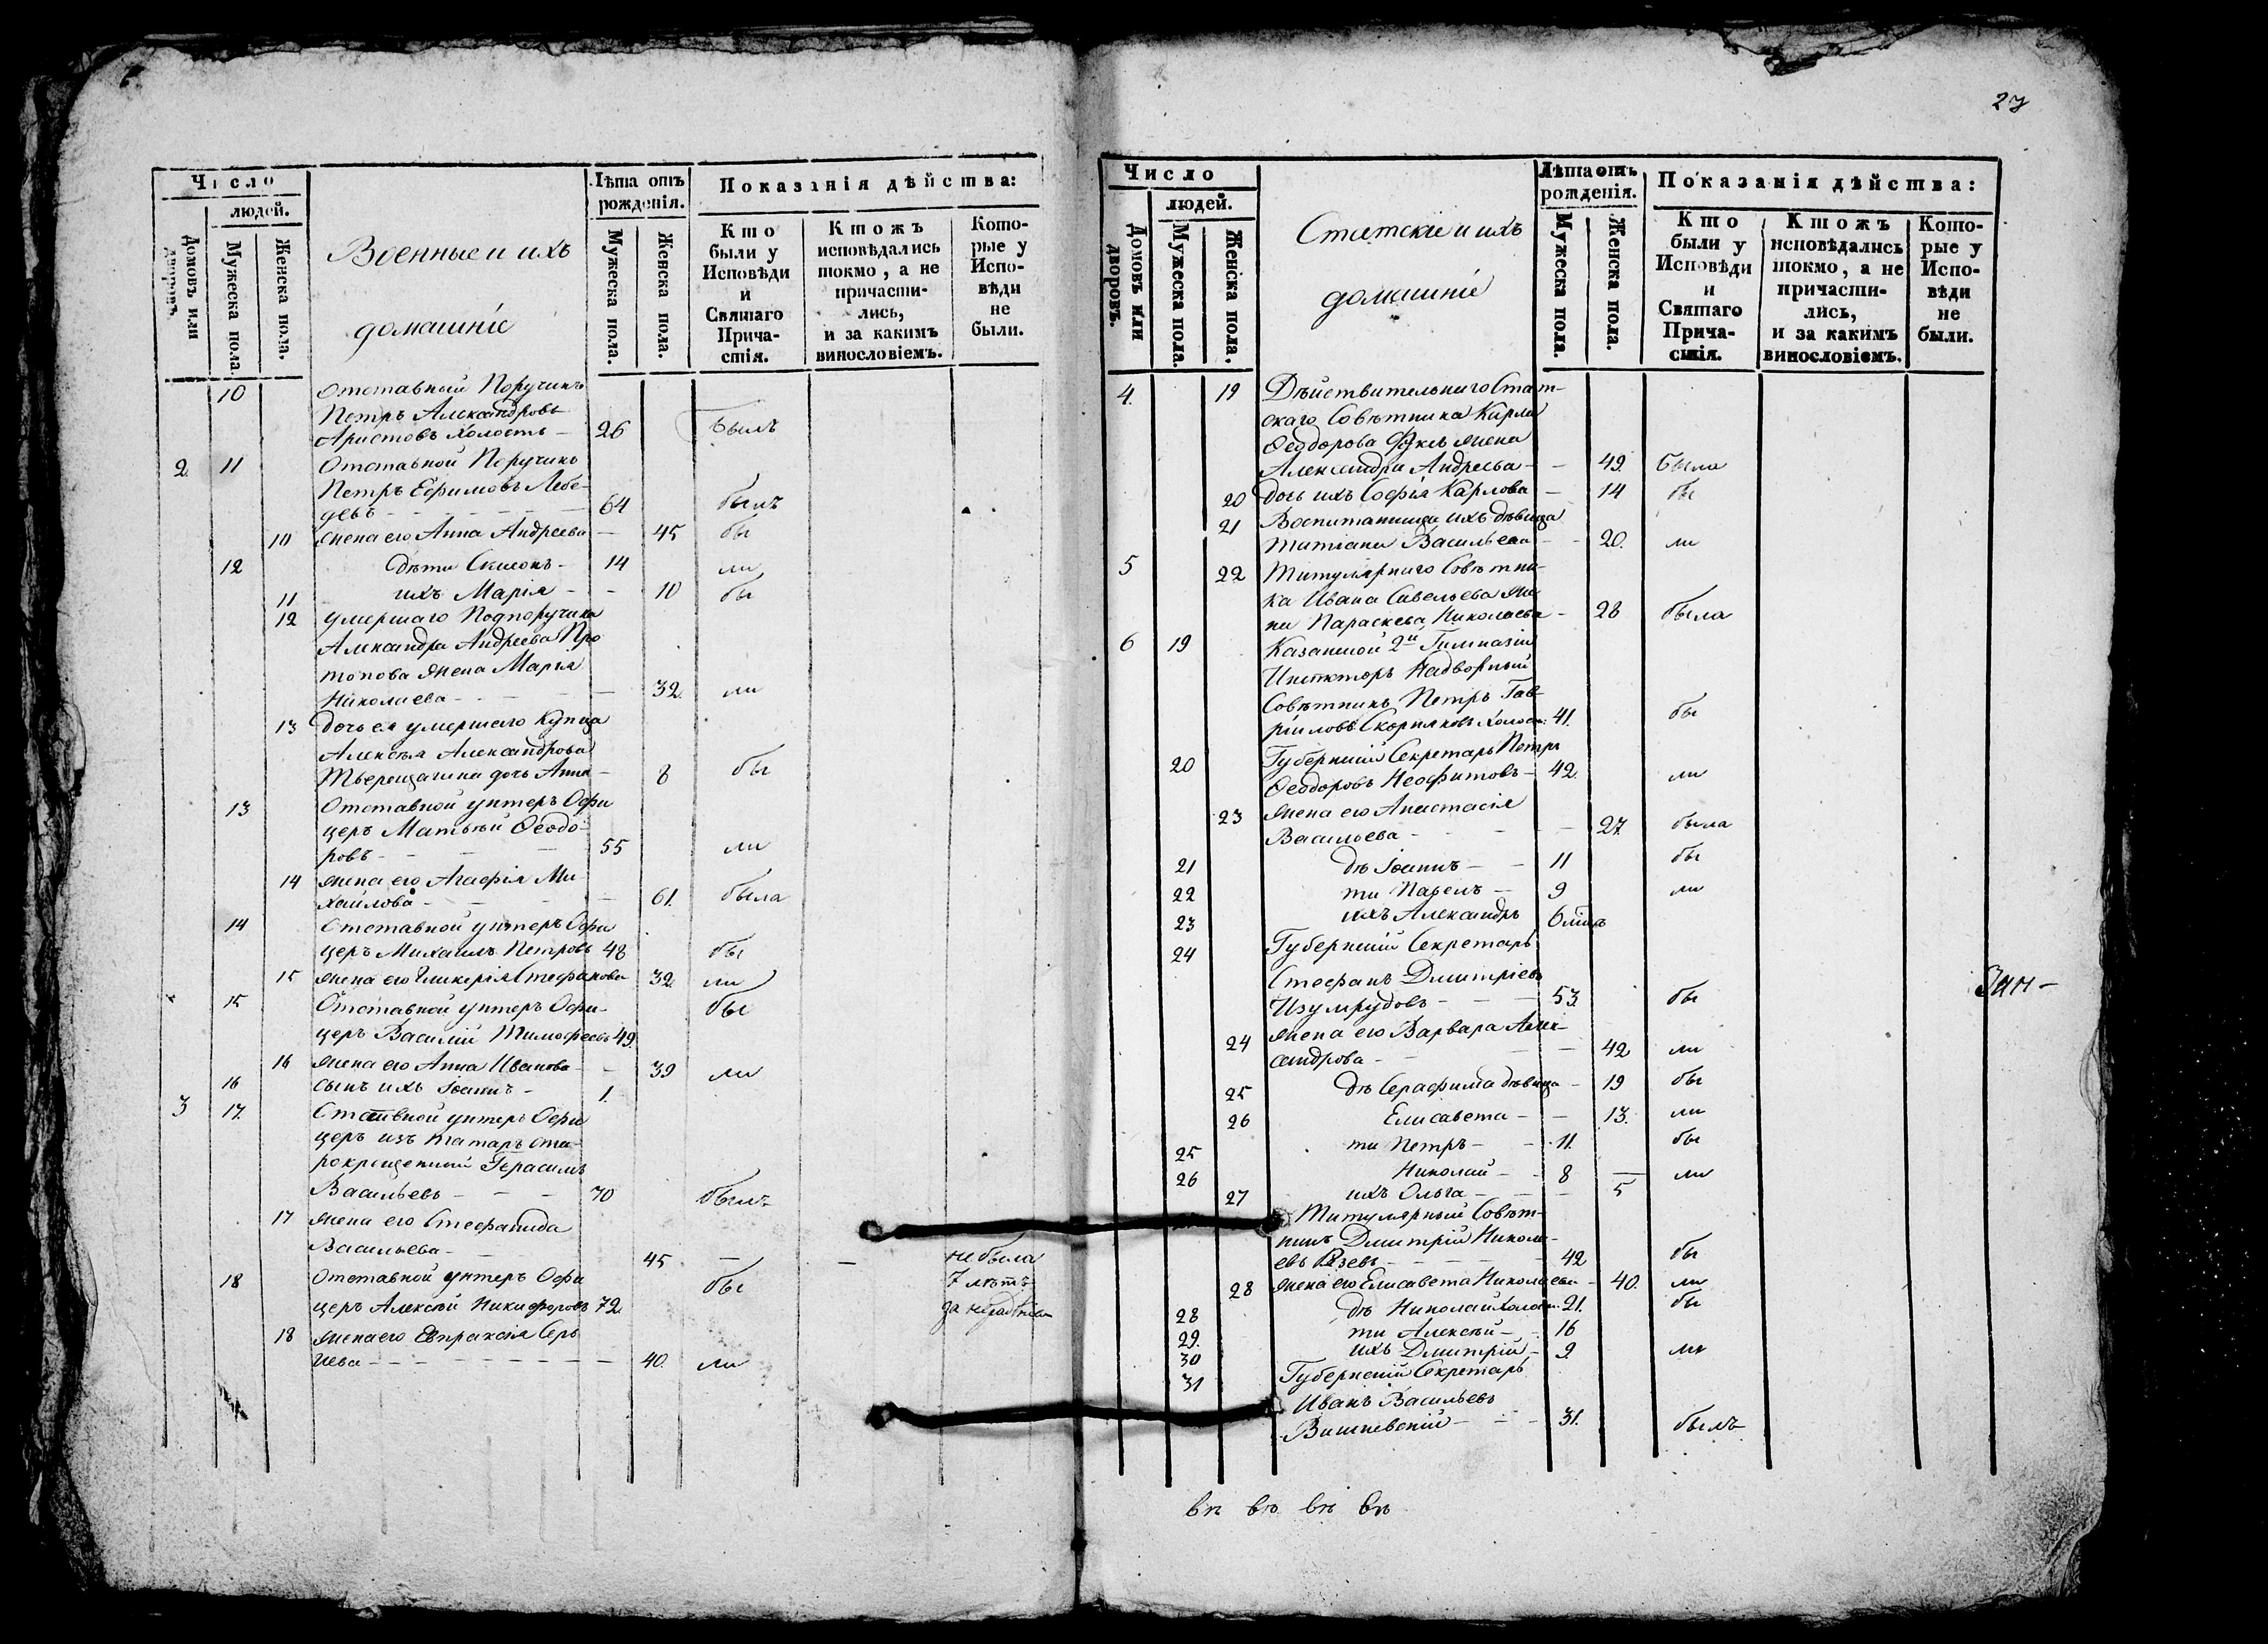 Число
людей.
Домовъ или дворовъ.
Мужеска пола.
Женска пола.
Военные и ихъ
домашніе
Лѣта отъ рожденія.
Мужеска пола.
Женска пола.
Показанія дѣйства:
Кто были у Исповѣди и Святаго Прича-стія.
Ктожъ исповѣдались токмо, а не причасти-лись, и за какимъ винословіемъ.
Кото-рые у Испо-вѣди не были.
10 Отставный Поручикъ
Петръ Александровъ
Аристовъ холостъ — 26 былъ
2 11 Отставной Поручикъ
Петръ Ефимовъ Лебе-
девъ — 64 былъ
10 жена его Анна Андреева — 45 бы
12 дѣти Симеонъ — 14 ли
11 ихъ Марія — 10 бы
12 умершаго Подпоручика
Александра Андреева Про
топова жена Марья
Николаева — 32 ли
13 дочь ея умершаго купца
Алексѣя Александрова
Тверещагина дочь Анна — 8 бы
13 Отставной унтеръ Офи
церъ Матвѣй Ѳеодо-
ровъ — 55 ли
14 жена его Агафія Ми
хайлова — 61. была
14 Отставной унтеръ Офи
церъ Михаилъ Петровъ 48 бы
15 жена его Гликерія Стефанова 32 ли
15 Отставной унтеръ Офи- бы
церъ Василій Тимофеевъ 49.
16 жена его Анна Иванова — 39 ли
16 сынъ ихъ Іоаннъ — 1.
3 17. Отставной унтеръ Офи
церъ изъ татаръ ста-
рокрещенный Герасимъ
Васильевъ — 70 былъ
17 жена его Стефанида
Васильева — 45 — — не была
18 Отставной унтеръ Офи бы 7 лѣтъ
церъ Алексѣй Никифоровъ 72.
18 жена его Евпраксія Сергѣ
иева — 40. ли
27
Число
людей.
Домовъ или дворовъ.
Мужеска пола.
Женска пола.
Статскіе и ихъ
домашніе
Лѣта отъ рожденія.
Мужеска пола.
Женска пола.
Показанія дѣйства:
Кто были у Исповѣди и Святаго Прича-стія.
Ктожъ исповѣдались токмо, а не причасти-лись, и за какимъ винословіемъ.
Кото-рые у Испо-вѣди не были.
4. 19 Дѣйствительнаго Стат-
скаго Совѣтника Карла
Ѳеодорова Фукса жена
Александра Андреева — 49. была
20 дочь ихъ Софія Карлова — 14 бы
21 Воспитанница ихъ дѣвица
Татіана Васильева — 20. ли
5 22 Титулярнаго Совѣтни-
ка Ивана Савельева же
на Параскева Николаева — 28 была
6 19 Казанской 2й Гимназіи
Инспекторъ Надворный
Совѣтникъ Петръ Гав-
ріиловъ Скорняковъ холост: 41. бы
20 Губернскій Секретарь Петръ
Ѳеодоровъ Неофитовъ — 42. ли
23 жена его Анастасія
Васильева — 27. была
21 дѣ Іоаннъ — 11 бы
22 ти Павелъ — 9 ли
23 ихъ Александръ
24 Губернскій Секретарь
Стефанъ Дмитріевъ
Изумрудовъ — 53. бы
24 жена его Варвара Алек-
сандрова — 42 ли
25 дѣ Серафима дѣвица — 19 бы
26 Елисавета — 13. ли
25 ти Петръ — 11. бы
26 Николай — 8 — ли
27 ихъ Ольга — 5
Титулярный Совѣт-
никъ Дмитрій Никола-
евъ — 42 бы
28 жена его Елисавета Николаева — 40. ли
28 дѣ Николай холост. 21. бы
29. ти Алексѣй — 16
30 ихъ Дмитрій — 9. ли
31 Губернскій Секретарь
Иванъ Васильевъ
Вишневскій — 31. былъ